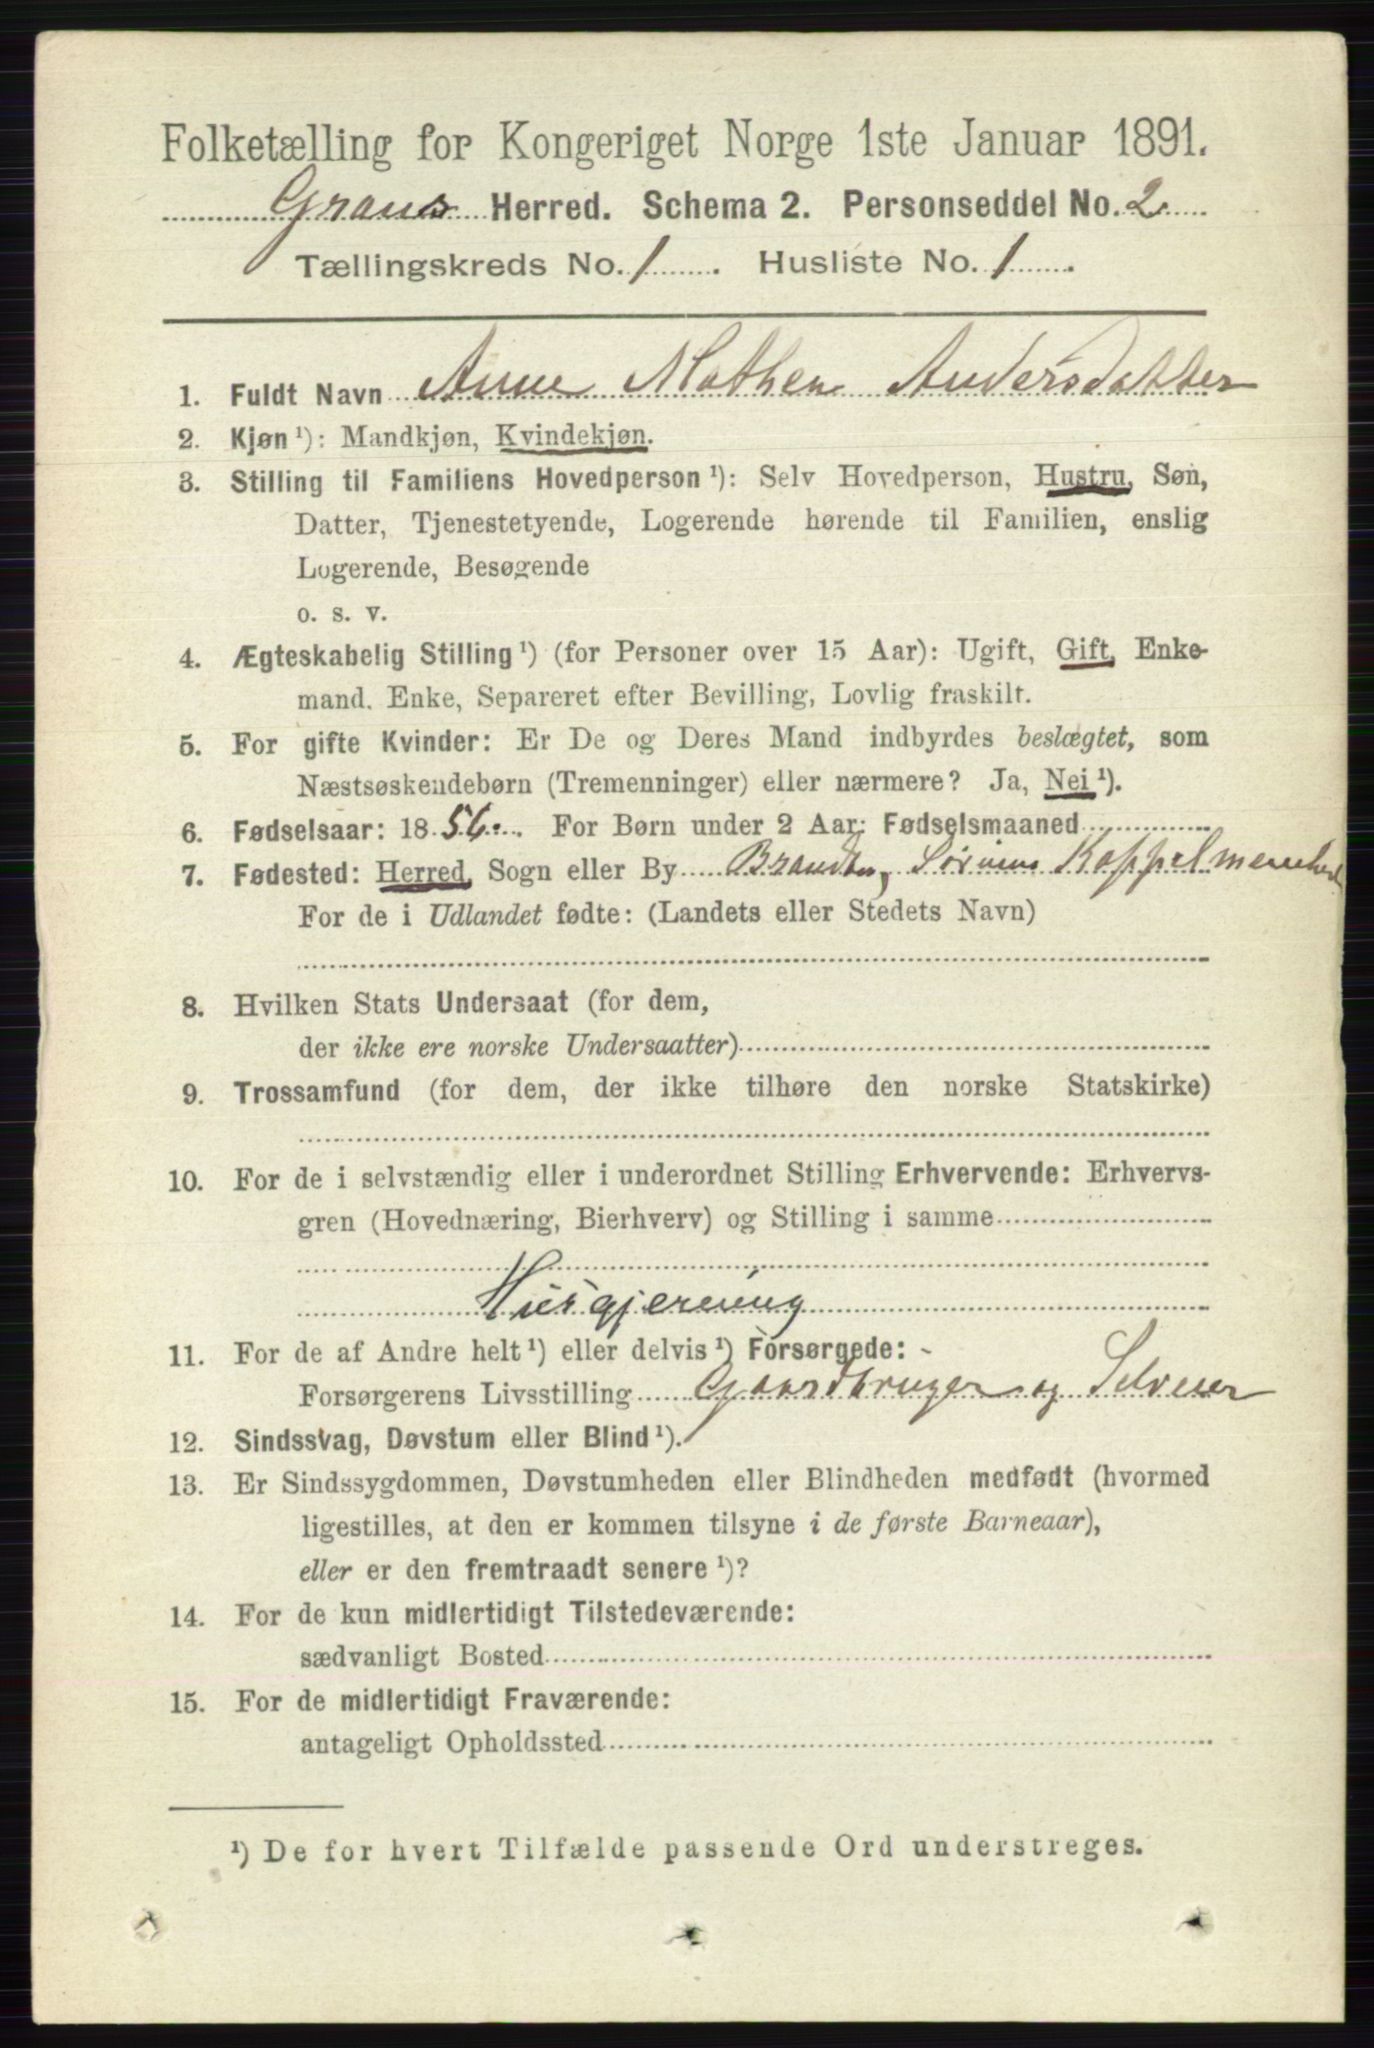 Folketælling for Kongeriget Norge 1ste Januar 1891.
Grans Herred. Schema 2. Personseddel No. 2
Tællingskreds No. 1 Husliste No. 1
1. Fuldt Navn Anne Mathea Andersdatter
2. Kjøn ¹): Mandkjøn, Kvindekjøn.
3. Stilling til Familiens Hovedperson ¹): Selv Hovedperson, Hustru, Søn,
Datter, Tjenestetyende, Logerende hørende til Familien, enslig
Logerende, Besøgende
o. s. v.
4. Ægteskabelig Stilling ¹) (for Personer over 15 Aar): Ugift, Gift, Enke-
mand. Enke, Separeret efter Bevilling, Lovlig fraskilt.
5. For gifte Kvinder: Er De og Deres Mand indbyrdes beslægtet, som
Næstsøskendebørn (Tremenninger) eller nærmere? Ja, Nei ¹).
6. Fødselsaar: 1856. For Børn under 2 Aar: Fødselsmaaned
7. Fødested: Herred, Sogn eller By Brandbu,
For de i Udlandet fødte: (Landets eller Stedets Navn)
8. Hvilken Stats Undersaat (for dem,
der ikke ere norske Undersaatter)
9. Trossamfund (for dem, der ikke tilhøre den norske Statskirke)
10. For de i selvstændig eller i underordnet Stilling Erhvervende: Erhvervs-
gren (Hovednæring, Bierhverv) og Stilling i samme
Husgjerning
11. For de af Andre helt ¹) eller delvis ¹) Forsørgede:
Forsørgerens Livsstilling Gaardbruger og Selveier
12. Sindssvag, Døvstum eller Blind ¹).
13. Er Sindssygdommen, Døvstumheden eller Blindheden medfødt (hvormed
ligestilles, at den er kommen tilsyne i de første Barneaar),
eller er den fremtraadt senere ¹)?
14. For de kun midlertidigt Tilstedeværende:
sædvanligt Bosted
15. For de midlertidigt Fraværende:
antageligt Opholdssted
¹) De for hvert Tilfælde passende Ord understreges.